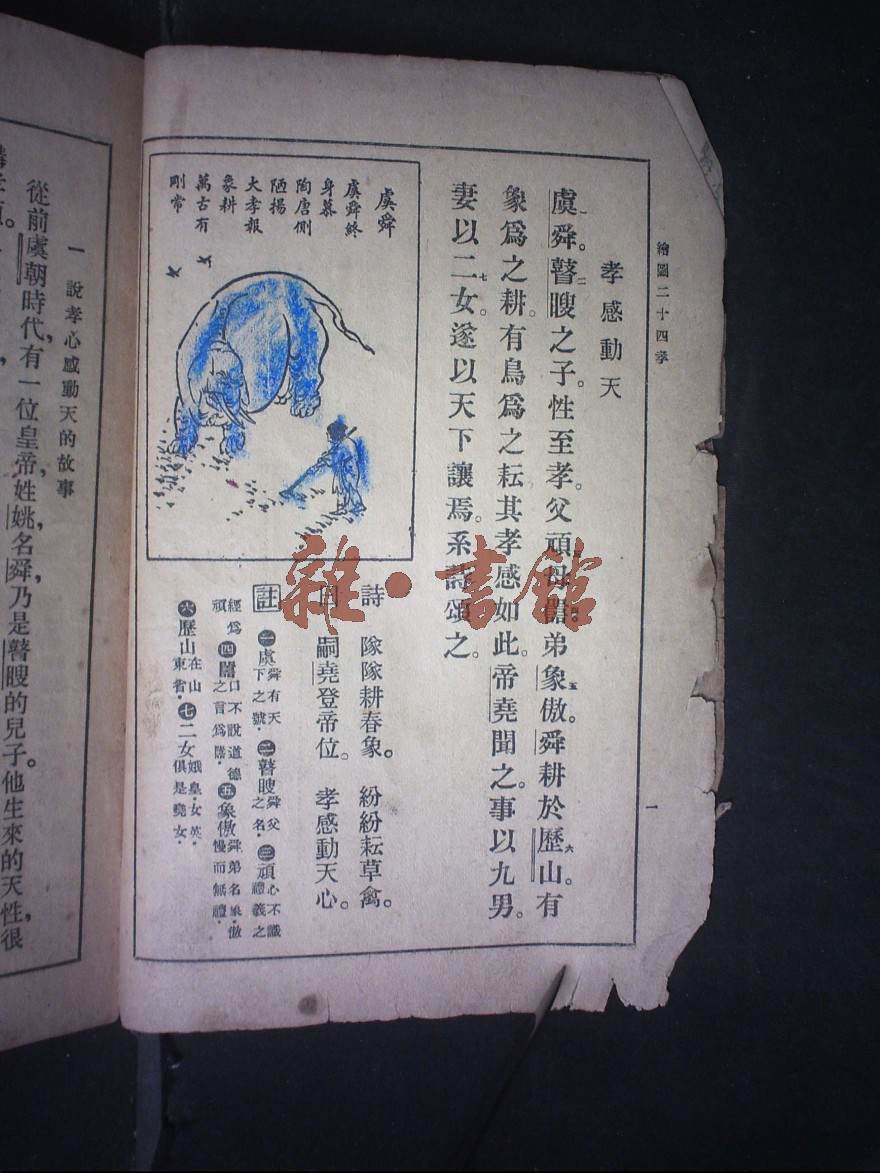 繪圖二十四孝
一
孝感動天
虞舜。瞽瞍之子。性至孝。父頑。母嚚。弟象傲。舜耕於歷山。有
象爲之耕。有鳥爲之耘。其孝感如此。帝堯聞之。事以九男。
妻以二女。遂以天下讓焉。系詩頌之。
虞舜
虞舜終
身慕
陶唐側
陋揚
大孝報
象耕
萬古有
剛常
詩 隊隊耕春象。 紛紛耘草禽。
曰 嗣堯登帝位。 孝感動天心。
註 ㊀虞舜有天下之號．㊁瞽瞍舜父之名．㊂頑心不識禮義之
經爲頑．㊃嚚口不說道德之言爲嚚．㊄象傲舜弟名象．傲慢而無禮．
㊅歷山在山東省．㊆二女娥皇．女英．俱是堯女．
雜·書館
一 說孝心感動天的故事
從前虞朝時代，有一位皇帝，姓姚，名舜，乃是瞽瞍的兒子。他生來的天性，很